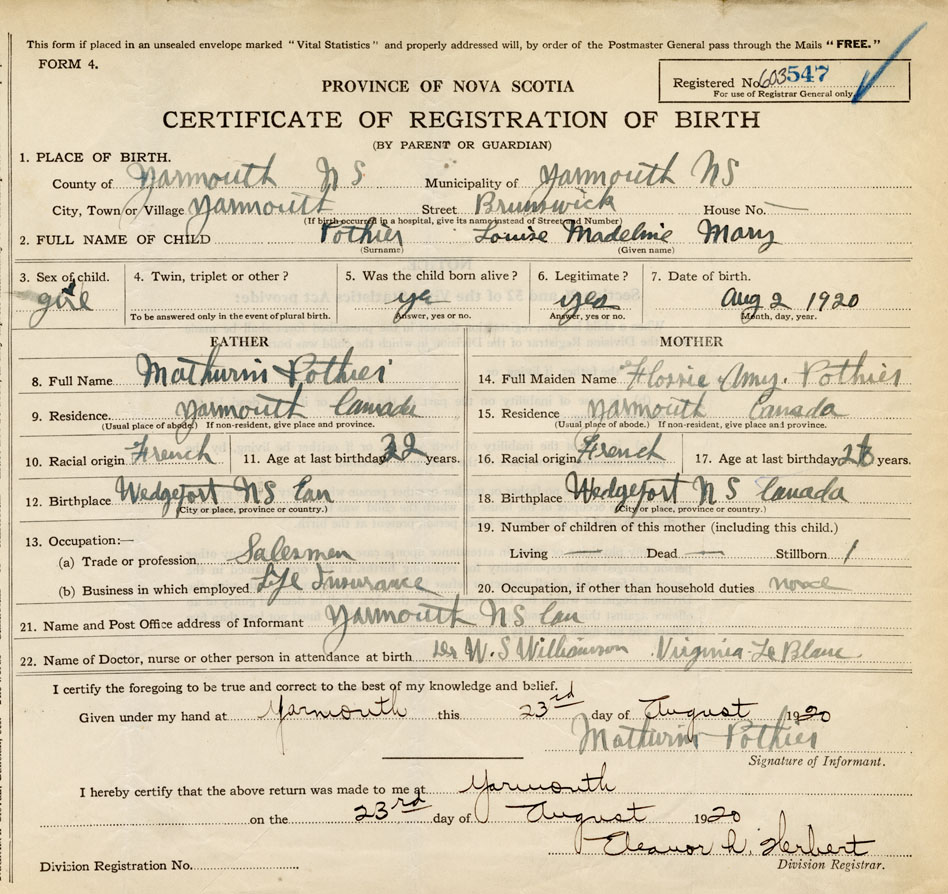 This form if placed in an unsealed envelope marked "Vital Statistics" and properly addressed will, by order of the Postmaster General pass through the Mails "FREE."
FORM 4.
Registered No. 603 547
For use of Registrar General only
PROVINCE OF NOVA SCOTIA
CERTIFICATE OF REGISTRATION OF BIRTH
(BY PARENT OR GUARDIAN)
1. PLACE OF BIRTH.
County of Yarmouth N S Municipality of Yarmouth NS
City, Town or Village Yarmouth Street Brunswick House No. —
(If birth occurred in a hospital, give its name instead of Street and Number)
2. FULL NAME OF CHILD Pothier Louise Madeline Mary
(Surname) (Given name)
3. Sex of child. 4. Twin, triplet or other? 5. Was the child born alive? 6. Legitimate? 7. Date of birth.
girl yes yes Aug 2 1920
To be answered only in the event of plural birth. Answer, yes or no. Answer, yes or no. Month, day, year.
FATHER MOTHER
8. Full Name Mathurin Pothier 14. Full Maiden Name Flossie Amy Pothier
9. Residence Yarmouth Canada 15. Residence Yarmouth Canada
(Usual place of abode.) If non-resident, give place and province. (Usual place of abode.) If non-resident, give place and province.
10. Racial origin French 11. Age at last birthday 32 years. 16. Racial origin French 17. Age at last birthday years.
12. Birthplace Wedgeport NS Can 18. Birthplace Wedgeport N S Canada
(City or place, province or country.) (City or place, province or country.)
13. Occupation:— 19. Number of children of this mother (including this child.)
(a) Trade or profession Salesman Living — Dead — Stillborn 1
(b) Business in which employed Life Insurance 20. Occupation, if other than household duties none
21. Name and Post Office address of Informant Yarmouth NS Can
22. Name of Doctor, nurse or other person in attendance at birth Dr W. S Williamson Virginia Le Blanc
I certify the foregoing to be true and correct to the best of my knowledge and belief.
Given under my hand at Yarmouth this 23rd day of August 1920
Mathurin Pothier
Signature of Informant.
I hereby certify that the above return was made to me at Yarmouth
on the 23rd day of August 1920
Eleanor L. Herbert
Division Registration No. Division Registrar.